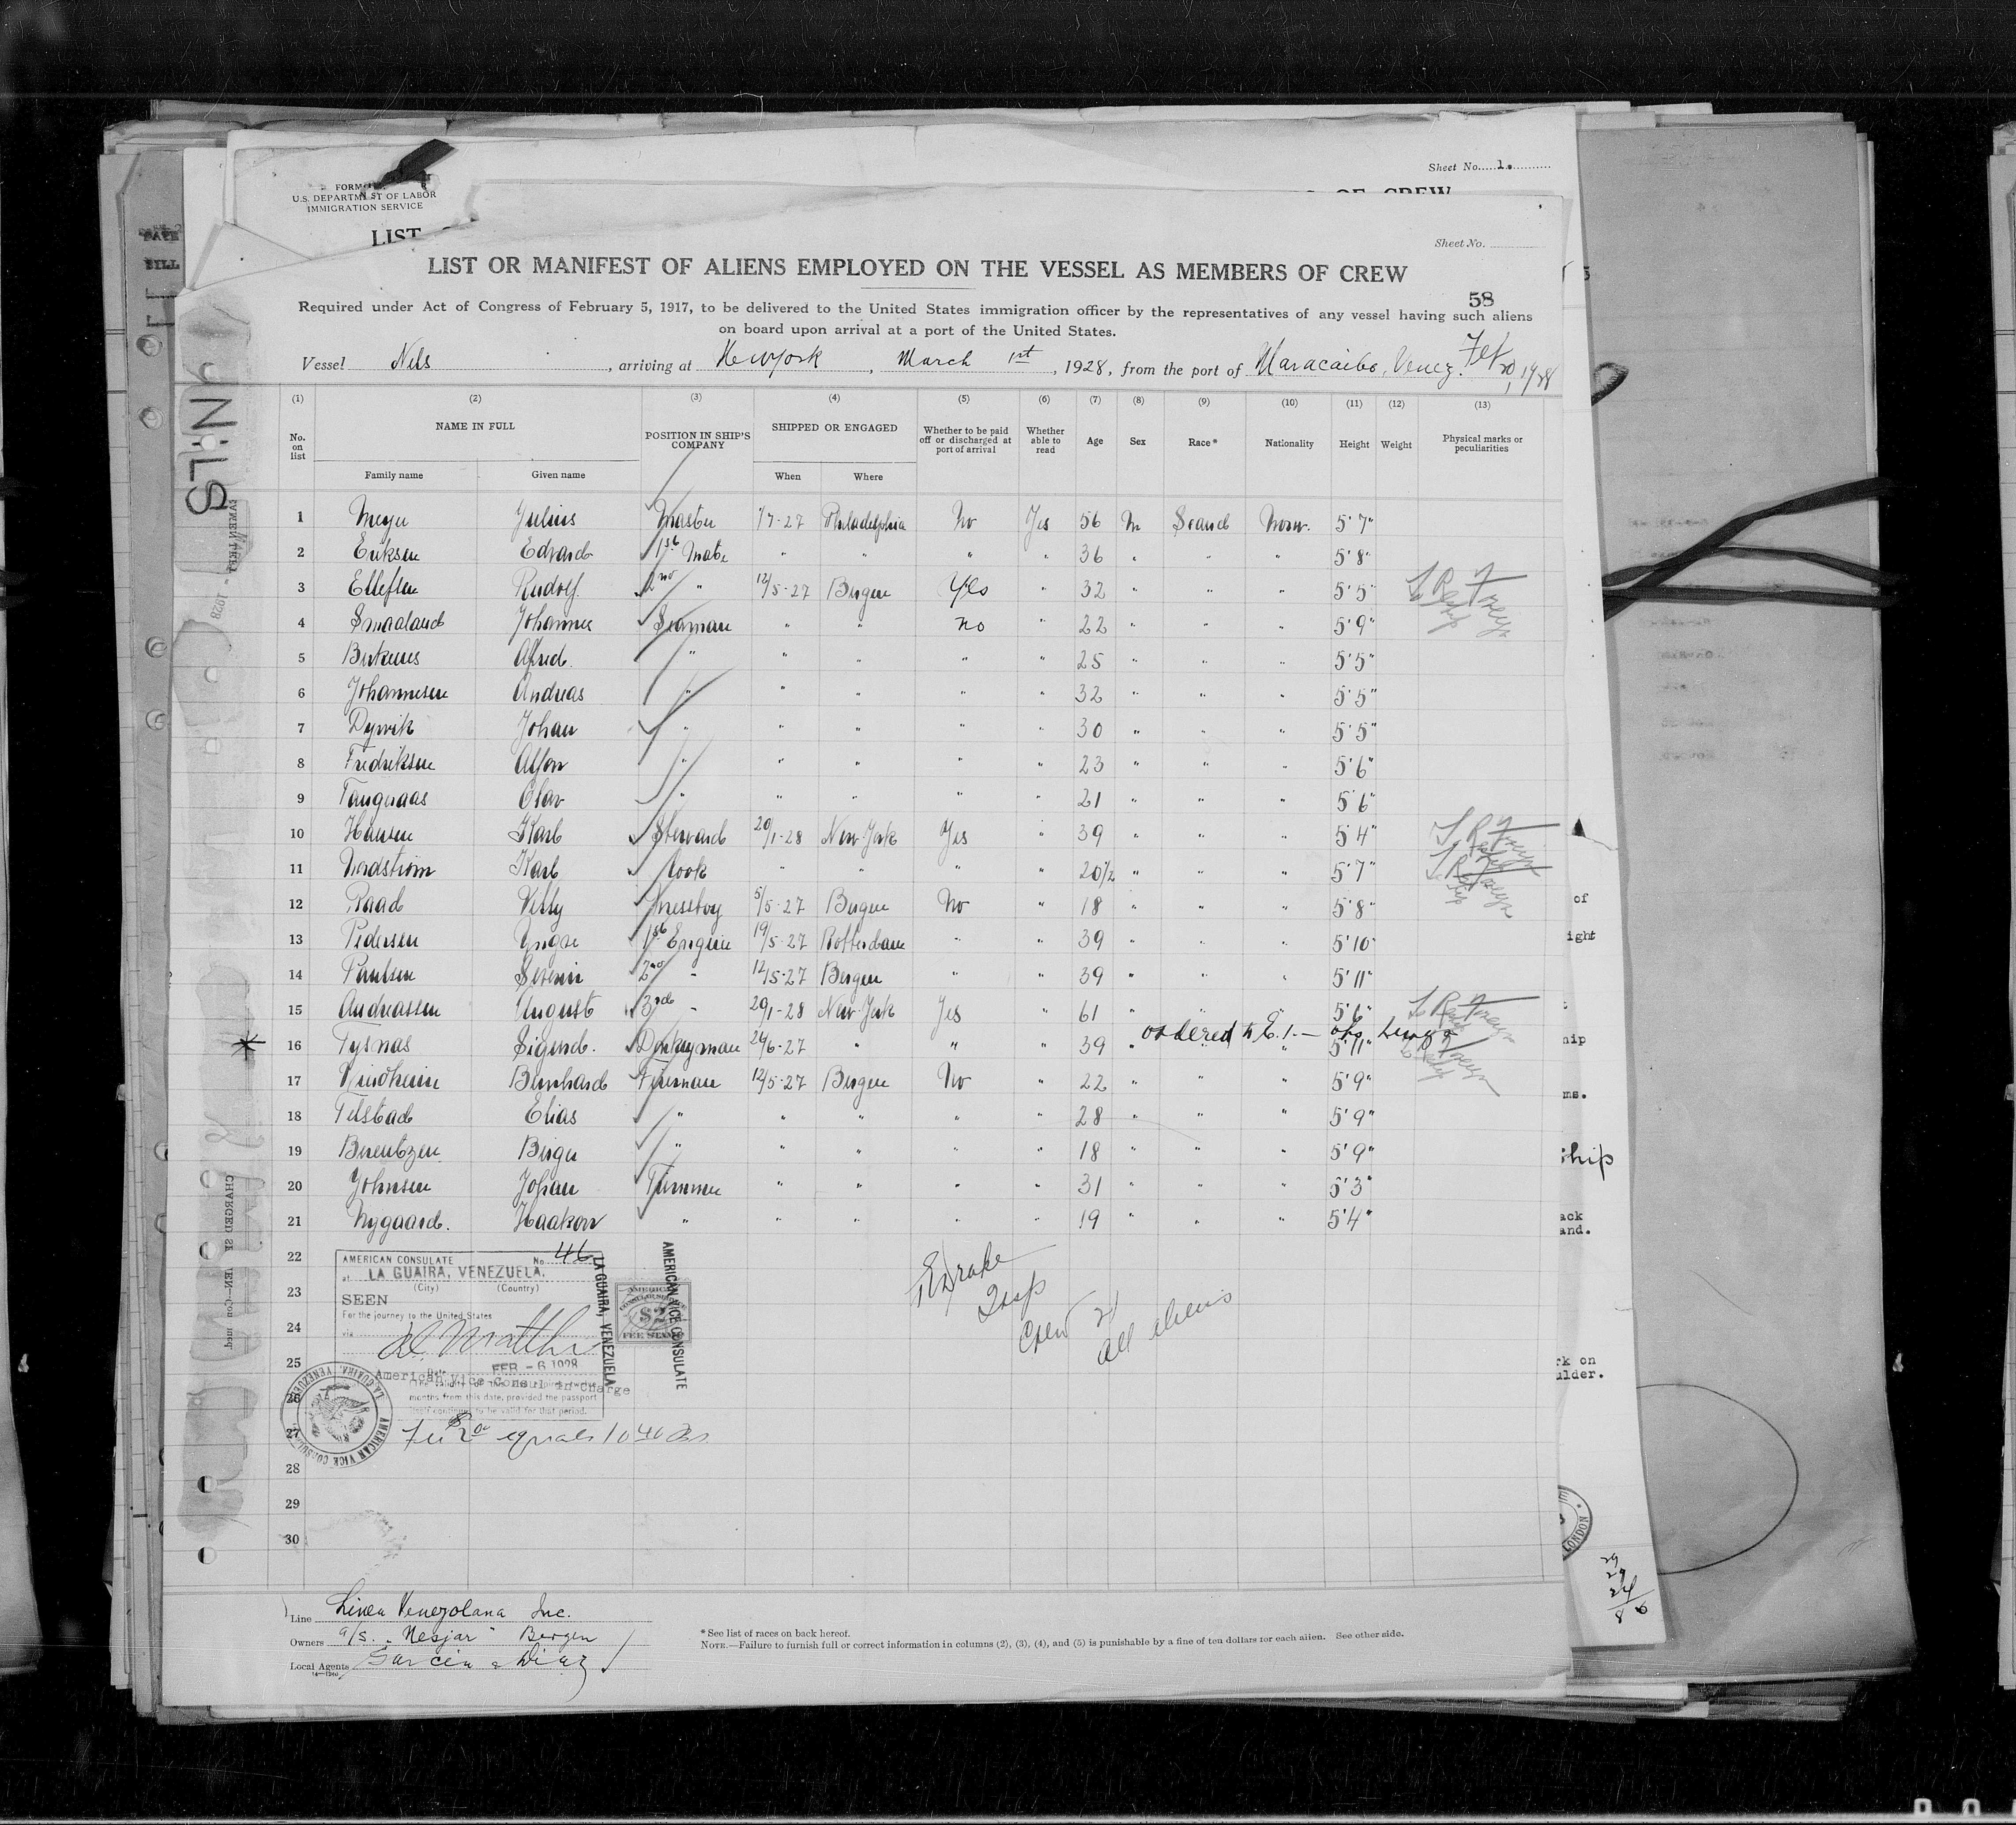 Sheet No. 1.
FORM
U.S. DEPARTMENT OF LABOR
IMMIGRATION SERVICE
OF CREW
LIST
Sheet No.
LIST OR MANIFEST OF ALIENS EMPLOYED ON THE VESSEL AS MEMBERS OF CREW
58
Required under Act of Congress of February 5, 1917, to be delivered to the United States immigration officer by the representatives of any vessel having such aliens
on board upon arrival at a port of the United States.
Vessel Nils, arriving at New York, March 1st, 1928, from the port of Maracaibo, Venez. Feb 20, 1928
(1) (2) (3) (4) (5) (6) (7) (8) (9) (10) (11) (12) (13)
No. on list NAME IN FULL POSITION IN SHIP'S COMPANY SHIPPED OR ENGAGED Whether to be paid off or discharged at port of arrival Whether able to read Age Sex Race* Nationality Height Weight Physical marks or peculiarities
Family name Given name When Where
1 Meyer Julius Master 1/7-27 Philadelphia No Yes 56 M Scand Norw. 5'7"
2 Eriksen Edvard 1st Mate " " " " 36 " " " 5'8"
3 Ellefsen Rudolf 2nd " 12/5-27 Bergen Yes " 32 " " " 5'5"
4 Smaaland Johannes Seaman " " no " 22 " " " 5'9"
5 Birkenes Alfred. " " " " " 25 " " " 5'5"
6 Johannesen Andreas " " " " " 32 " " " 5'5"
7 Dyrvik Johan " " " " " 30 " " " 5'5"
8 Fredriksen Alfon " " " " " 23 " " " 5'6"
9 Tangeraas Olav " " " " " 21 " " " 5'6"
10 Hansen Karl Steward 20/1-28 New York Yes " 39 " " " 5'4"
11 Nordstrom Karl Cook " " " " 20½ " " " 5'7"
12 Raad Villy Messboy 5/5-27 Bergen No " 18 " " " 5'8"
13 Pedersen Yngve 1st Engine 19/5-27 Rotterdam " " 39 " " " 5'10"
14 Paulsen Severin 2nd " 12/5-27 Bergen " " 39 " " " 5'11"
15 Andreassen August 3rd " 20/1-28 New York Yes " 61 " " " 5'6"
16 Tysnas Sigurd. Donkeyman 24/6-27 " " " 39 " ordered to E.I. — 5'11"
17 Vindheim Bernhard Fireman 12/5-27 Bergen No " 22 " " " 5'9"
18 Telstad Elias " " " " " 28 " " " 5'9"
19 Berentzen Birger " " " " " 18 " " " 5'9"
20 Johnsen Johan Trimmer " " " " 31 " " " 5'3"
21 Nygaard. Haakon " " " " " 19 " " " 5'4"
22
23
24
25
26
27
28
29
30
AMERICAN CONSULATE No 46
at LA GUAIRA, VENEZUELA.
(City) (Country)
SEEN
For the journey to the United States
via
Date FEB - 6 1928
American Vice Consul in Charge
months from this date, provided the passport
itself continues to be valid for that period.
AMERICAN VICE CONSULATE
LA GUAIRA, VENEZUELA
$2
FEE STAMP
AMERICAN VICE CONSULATE LA GUAIRA, VENEZUELA
Fee $2.00 equals 10.40 Bs
Drake
Insp
Crew 21
all aliens
Line Linea Venezolana Inc.
Owners a/s. "Nesjar" Bergen
Local Agents Garcia & Diaz
*See list of races on back hereof.
NOTE.—Failure to furnish full or correct information in columns (2), (3), (4), and (5) is punishable by a fine of ten dollars for each alien. See other side.
NILS
of
ight
hip
ms.
ship
ack
and.
rk on
ulder.
LONDON
29
29
24
86